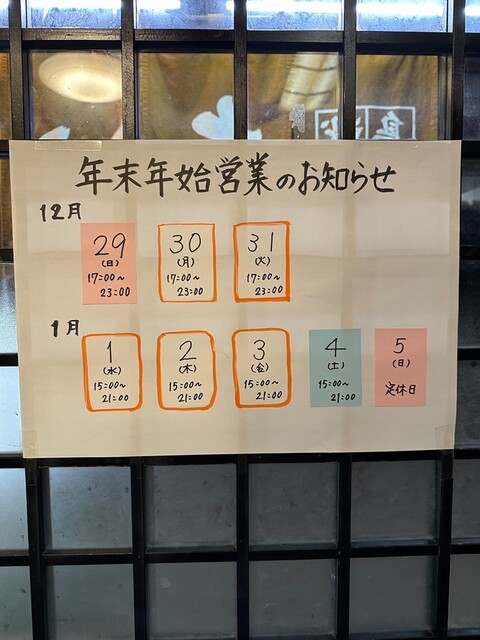 年末年始営業のお知らせ
12月
29
(日)
17:00~
23:00
30
(月)
17:00~
23:00
31
(火)
17:00~
23:00
1月
1
(水)
15:00~
21:00
2
(木)
15:00~
21:00
3
(金)
15:00~
21:00
4
(土)
15:00~
21:00
5
(日)
定休日